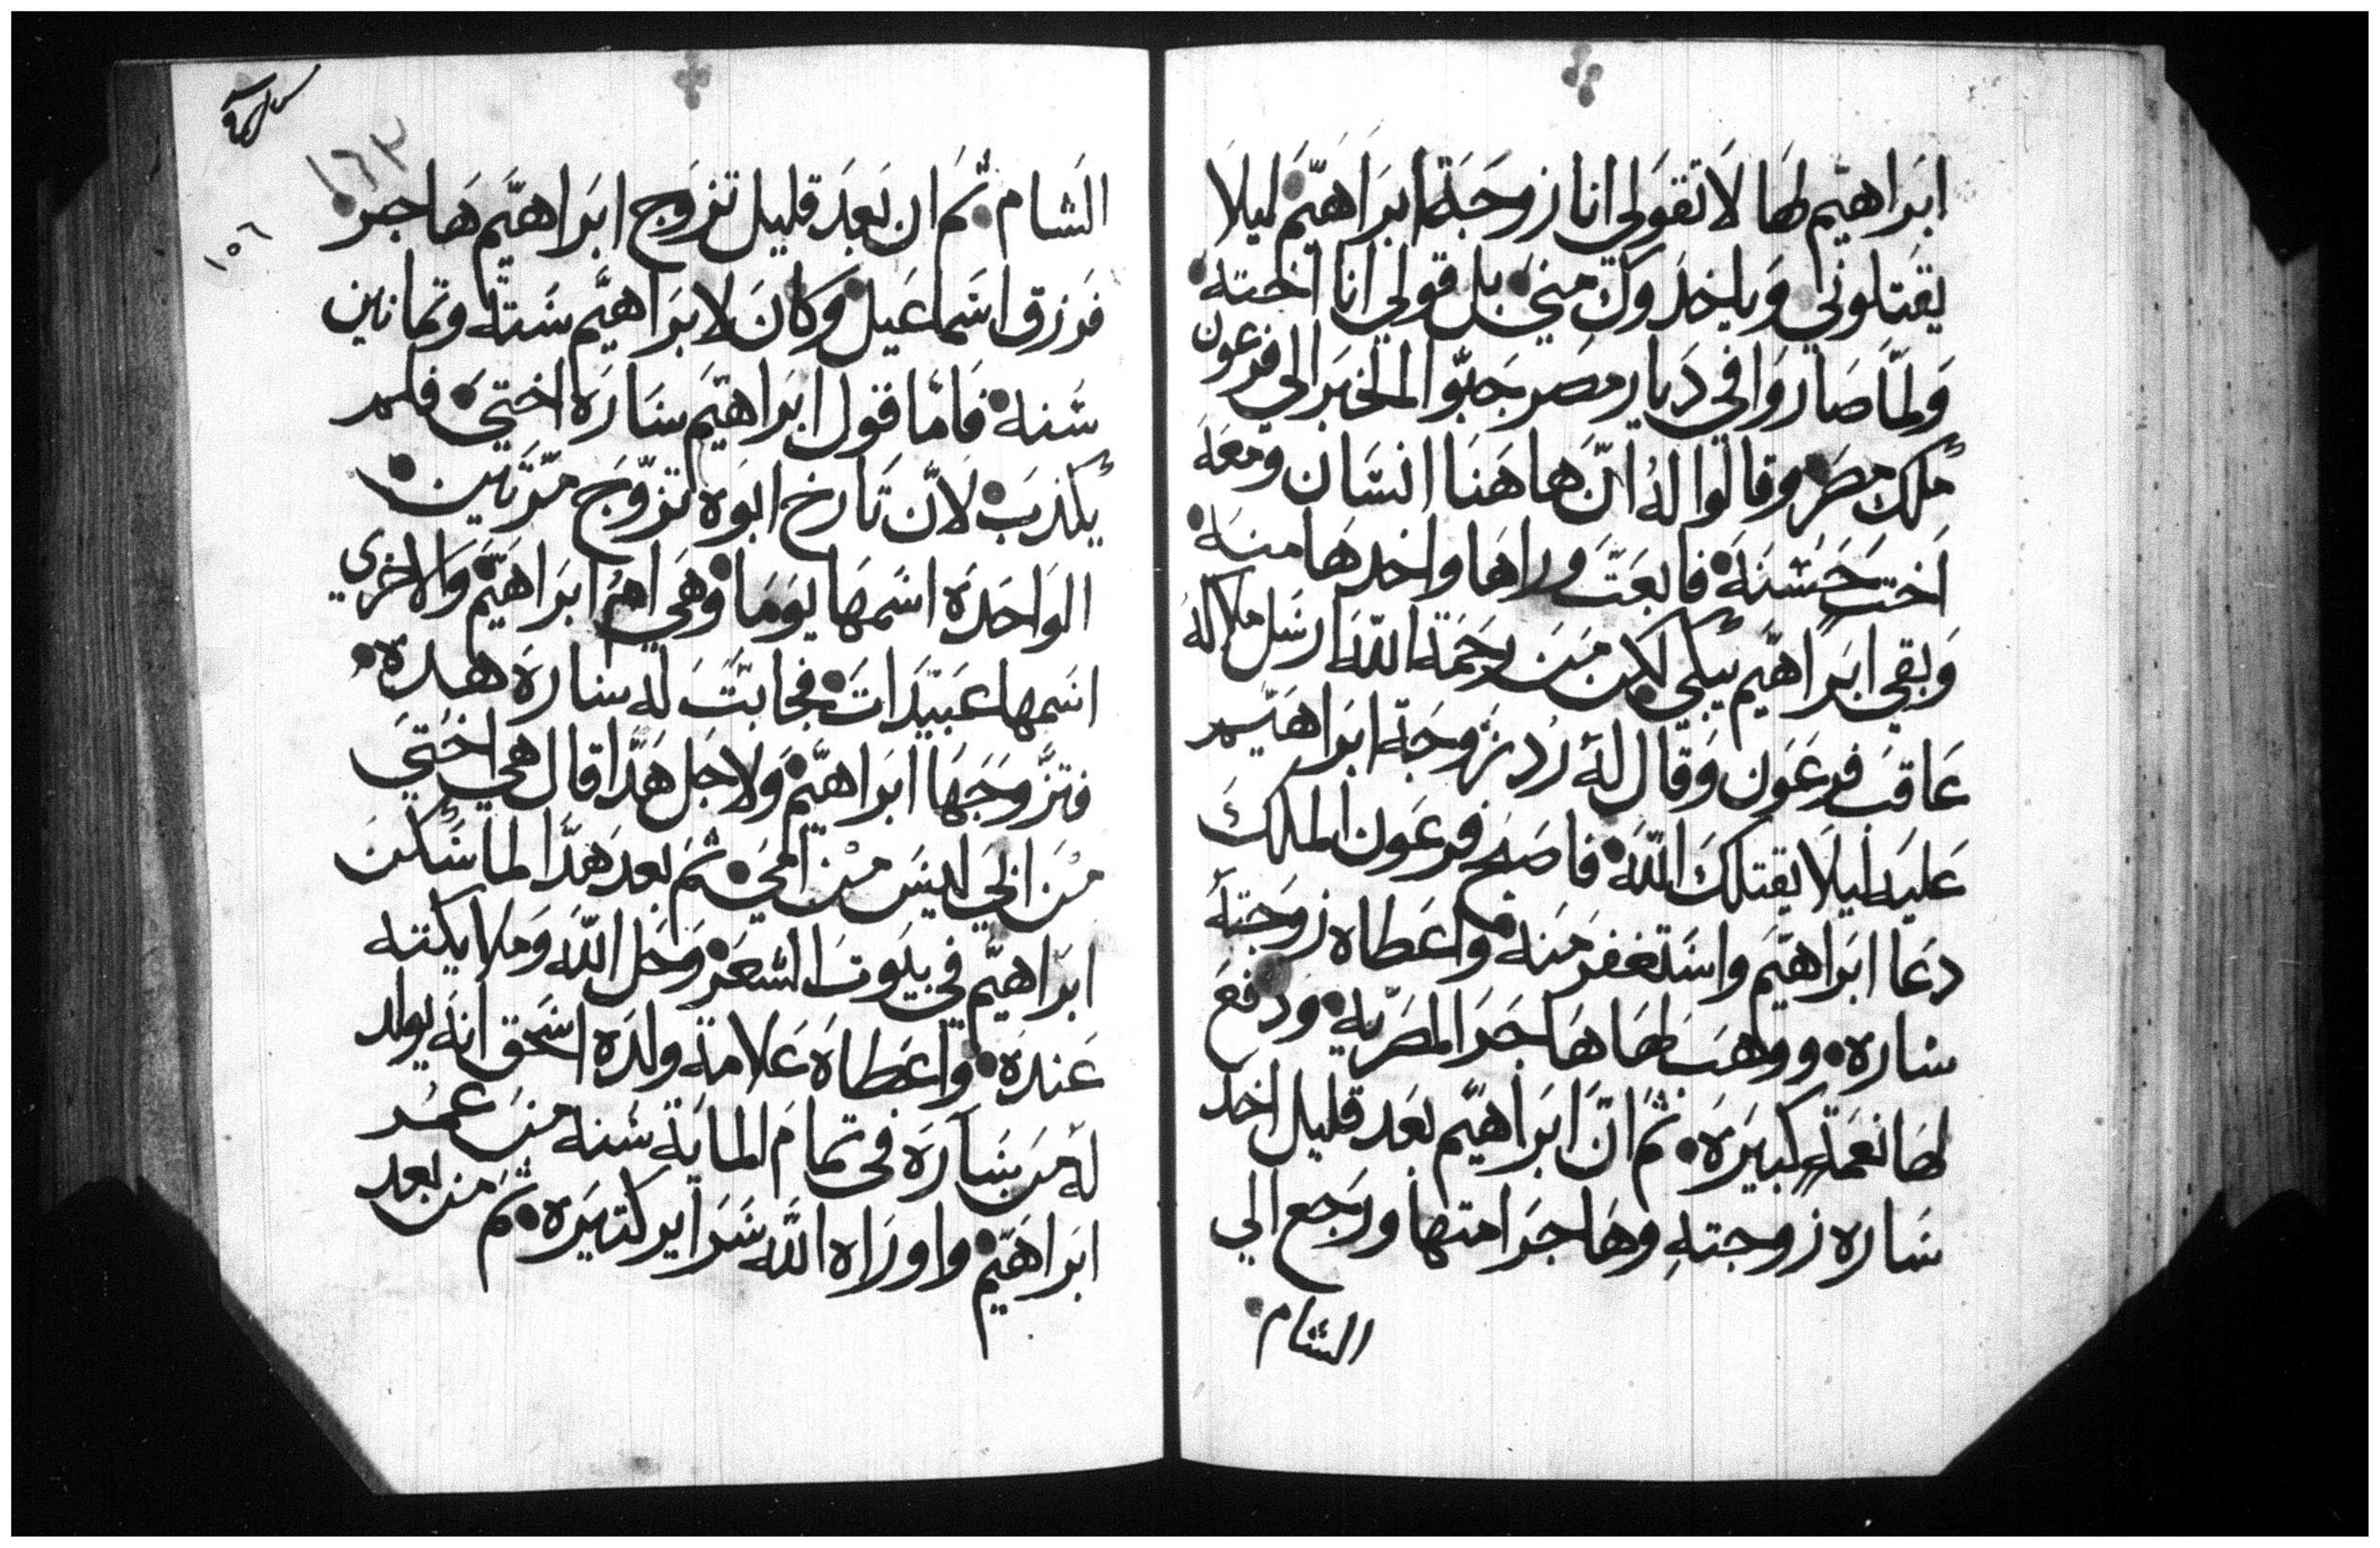 ابراهيم لها لا تقولي انا زوجة ابراهيم ليلا
يقتلوني وياخدوك مني بل قولي انا اخته
ولما صاروا في ديار مصر جبوا الخبر الي فرعون
ملك مصر وقالوا له ان هاهنا انسان ومعه
اخت حسنه فابعت وراها واخدها منه
وبقي ابراهيم يبكي لكن من رحمة الله ارسل ملاكه
عاقب فرعون وقال له رد زوجة ابراهيم
عليه ليلا يقتلك الله فاصبح فرعون الملك
دعا ابراهيم واستغفر منه واعطاه زوجته
ساره ووهب لها هاجر المصريه ودفع
لها نعمة كبيره ثم ان ابراهيم بعد قليل اخد
ساره زوجته وهاجر امتها ورجع الي
الشام
١٦٣
١٥٦
الشام ثم ان بعد قليل تزوج ابراهيم هاجر
فرزق اسماعيل وكان لابراهيم ستة وتمانين
سنه فاما قول ابراهيم ساره اختي فلم
يكذب لان تارخ ابوه تزوج مرتين
الواحده اسمها يوما وهي ام ابراهيم والاخري
اسمها عبيدات فجابت له ساره هدة
فتزوجها ابراهيم ولاجل هدا قال هي اختي
من ابي ليس من امي ثم بعد هدا لما سكن
ابراهيم في بيوت الشعر وحل الله وملايكته
عنده واعطاه علامة ولده اسحق انه يولد
له من ساره في تمام الماية سنه من عمر
ابراهيم واوراه الله سراير كتيره ثم من بعد